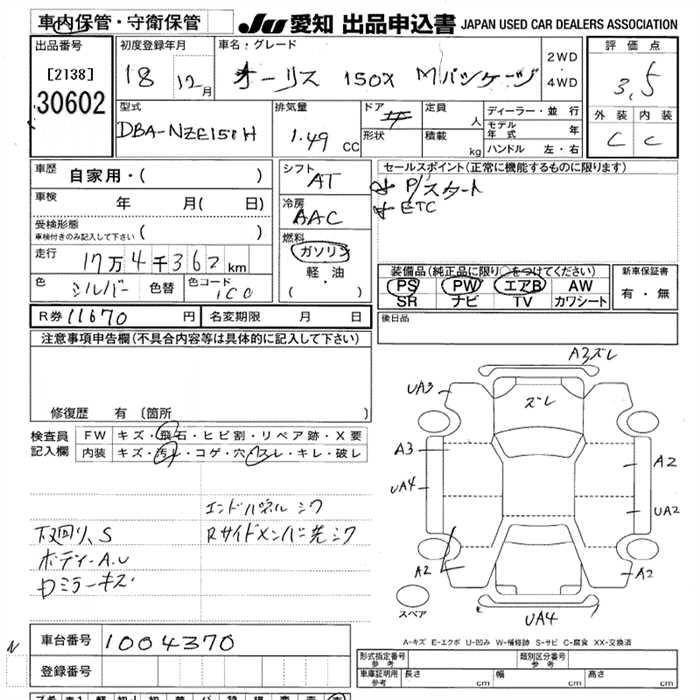 車内保管・守衛保管
JU 愛知 出品申込書 JAPAN USED CAR DEALERS ASSOCIATION
出品番号
[2138]
30602
初度登録年月
18 12月
車名・グレード
オーリス 150X Mパッケージ
2WD
・
4WD
評価点
3.5
外装 内装
C C
型式
DBA-NZE151H
排気量
1.49 CC
ドア
形状
定員 人
積載 kg
ディーラー・並行
モデル年式 年
ハンドル 左・右
車歴
自家用・( )
車検 年 月( 日)
受検形態
車検付きのみ記入して下さい ( )
走行
17万4千362km
色 シルバー 色替 色コード 1C0
シフト
AT
冷房
AAC
燃料
ガソリン
軽・油
( ・ )
セールスポイント(正常に機能するものに限ります)
P/スタート
ETC
装備品(純正品に限り○をつけてください)
PS PW エアB AW
SR ナビ TV カワシート
新車保証書
有・無
R券 11670 円 名変期限 月 日
後日品
注意事項申告欄(不具合内容等は具体的に記入して下さい)
修復歴 有 〔箇所 〕
検査員記入欄
FW キズ・飛石・ヒビ割・リペア跡・X要
内装 キズ・汚れ・コゲ・穴・スレ・キレ・破レ
エンドパネル シワ
下廻り、S Rサイドメンバー先シワ
ボディーA.U
Dミラーキズ
A3ズレ
UA3
ズレ
A3
A2
UA4
UA2
A2
A2
スペア
UA4
A-キズ E-エクボ U-凹み W-補修跡 S-サビ C-腐食 XX-交換済
N
車台番号 1004370
登録番号
形式指定番号 参考
類別区分番号 参考
車庫証明用 参考 長さ cm 幅 cm 高さ cm